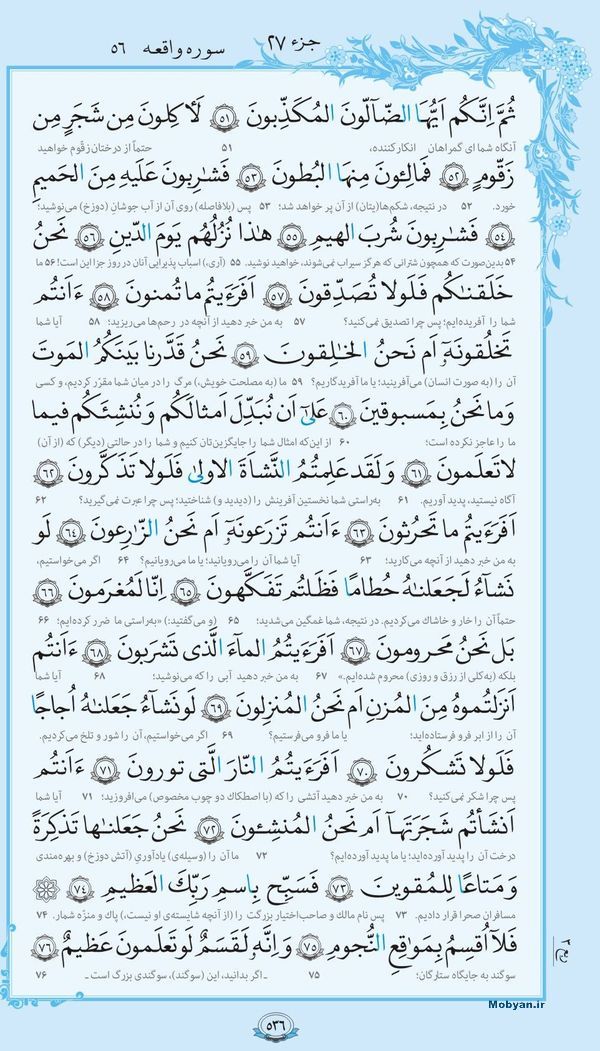 جزء ۲۷
سوره واقعه ۵۶
ثُمَّ اِنَّكُم اَيُّهَا الضّآلّونَ المُكَذِّبونَ ﴿۵۱﴾ لَأٰكِلونَ مِن شَجَرٍ مِن
آنگاه شما ای گمراهان انکارکننده، ۵۱ حتماً از درختان زقّوم خواهید
زَقّومٍ ﴿۵۲﴾ فَمالِئونَ مِنهَا البُطونَ ﴿۵۳﴾ فَشٰرِبونَ عَلَيهِ مِنَ الحَميمِ
خورد. ۵۲ در نتیجه، شکم‌ها(یتان) از آن پر خواهد شد؛ ۵۳ پس (بلافاصله) روی آن از آب جوشانِ (دوزخ) می‌نوشید؛
﴿۵۴﴾ فَشٰرِبونَ شُربَ الهيمِ ﴿۵۵﴾ هٰذا نُزُلُهُم يَومَ الدّينِ ﴿۵۶﴾ نَحنُ
۵۴ بدین‌صورت که همچون شترانی که هرگز سیراب نمی‌شوند، خواهید نوشید. ۵۵ (آری،) اسباب پذیرایی آنان در روز جزا این است! ۵۶ ما
خَلَقنٰكُم فَلَولا تُصَدِّقونَ ﴿۵۷﴾ اَفَرَءَيتُم ما تُمنونَ ﴿۵۸﴾ ءَاَنتُم
شما را آفریده‌ایم؛ پس چرا تصدیق نمی‌کنید؟ ۵۷ به من خبر دهید از آنچه در رحم‌ها می‌ریزید؛ ۵۸ آیا شما
تَخلُقونَهٓ اَم نَحنُ الخٰلِقونَ ﴿۵۹﴾ نَحنُ قَدَّرنا بَينَكُمُ المَوتَ
آن را (به صورت انسان) می‌آفرینید؛ یا ما آفریدگاریم؟ ۵۹ ما (به مصلحت خویش،) مرگ را در میان شما مقرّر کردیم، و کسی
وَ ما نَحنُ بِمَسبوقينَ ﴿۶۰﴾ عَلىٰٓ اَن نُبَدِّلَ اَمثالَكُم وَ نُنشِئَكُم فيما
ما را عاجز نکرده است؛ ۶۰ از این‌که امثال شما را جایگزین‌تان کنیم و شما را در حالتی (دیگر) که (از آن)
لا تَعلَمونَ ﴿۶۱﴾ وَ لَقَد عَلِمتُمُ النَّشاَةَ الاولىٰ فَلَولا تَذَكَّرونَ ﴿۶۲﴾
آگاه نیستید، پدید آوریم. ۶۱ به‌راستی شما نخستین آفرینش را (دیدید و) شناختید؛ پس چرا عبرت نمی‌گیرید؟ ۶۲
اَفَرَءَيتُم ما تَحرُثونَ ﴿۶۳﴾ ءَاَنتُم تَزرَعونَهٓ اَم نَحنُ الزّٰرِعونَ ﴿۶۴﴾ لَو
به من خبر دهید از آنچه می‌کارید؛ ۶۳ آیا شما آن را می‌رویانید؛ یا ما می‌رویانیم؟ ۶۴ اگر می‌خواستیم،
نَشآءُ لَجَعَلنٰهُ حُطامًا فَظَلتُم تَفَكَّهونَ ﴿۶۵﴾ اِنّا لَمُغرَمونَ ﴿۶۶﴾
حتماً آن را خار و خاشاک می‌کردیم. در نتیجه، شما غمگین می‌شدید؛ ۶۵ (و می‌گفتید:) «به‌راستی ما ضرر کرده‌ایم؛ ۶۶
بَل نَحنُ مَحرومونَ ﴿۶۷﴾ اَفَرَءَيتُمُ المآءَ الَّذى تَشرَبونَ ﴿۶۸﴾ ءَاَنتُم
بلکه (به‌کلی از رزق و روزی) محروم شده‌ایم.» ۶۷ به من خبر دهید آبی را که می‌نوشید؛ ۶۸ آیا شما
اَنزَلتُموهُ مِنَ المُزنِ اَم نَحنُ المُنزِلونَ ﴿۶۹﴾ لَو نَشآءُ جَعَلنٰهُ اُجاجًا
آن را از ابر فرو فرستاده‌اید؛ یا ما فرو می‌فرستیم؟ ۶۹ اگر می‌خواستیم، آن را شور و تلخ می‌کردیم.
فَلَولا تَشكُرونَ ﴿۷۰﴾ اَفَرَءَيتُمُ النّارَ الَّتى تورونَ ﴿۷۱﴾ ءَاَنتُم
پس چرا شکر نمی‌کنید؟ ۷۰ به من خبر دهید آتشی را که (با اصطکاک دو چوب مخصوص) می‌افروزید؛ ۷۱ آیا شما
اَنشَأتُم شَجَرَتَهآ اَم نَحنُ المُنشِئونَ ﴿۷۲﴾ نَحنُ جَعَلنٰها تَذكِرَةً
درخت آن را پدید آورده‌اید؛ یا ما پدید آورده‌ایم؟ ۷۲ ما آن را (وسیله‌ی) یادآوری (آتش دوزخ) و بهره‌مندی
وَ مَتاعًا لِلمُقوينَ ﴿۷۳﴾ فَسَبِّح بِاسمِ رَبِّكَ العَظيمِ ﴿۷۴﴾
مسافران صحرا قرار دادیم. ۷۳ پس نام مالک و صاحب‌اختیار بزرگت را (از آنچه شایسته‌ی او نیست،) پاک و منزّه شمار. ۷۴
فَلآ اُقسِمُ بِمَوٰقِعِ النُّجومِ ﴿۷۵﴾ وَ اِنَّهٗ لَقَسَمٌ لَو تَعلَمونَ عَظيمٌ ﴿۷۶﴾
سوگند به جایگاه ستارگان؛ ۷۵ ـ اگر بدانید، این (سوگند)، سوگندی بزرگ است ـ ۷۶
Mobyan.ir
۵۳۶